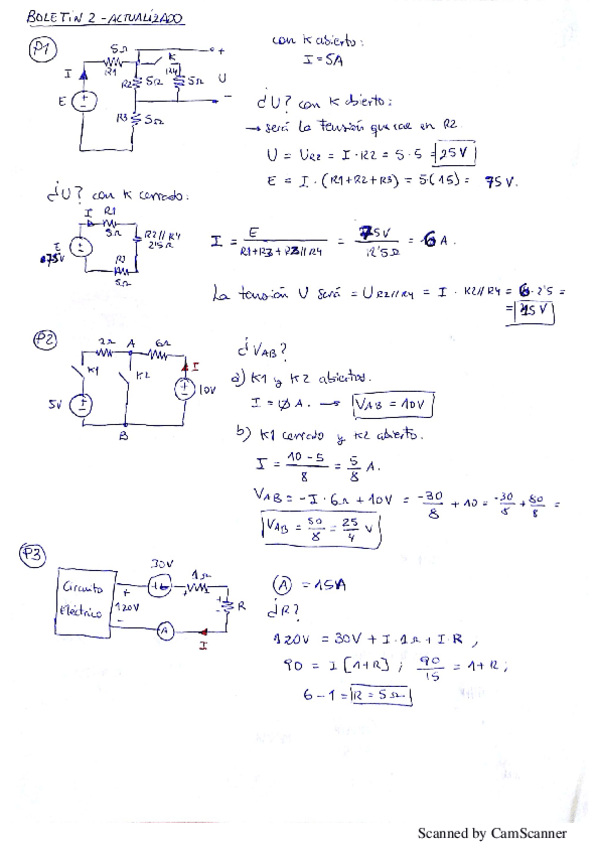 BOLETIN 2 - ACTUALIZADO
P1
5Ω
R1
I
E
R2 5Ω
K
R4
5Ω
U
+
-
R3 5Ω
con K abierto:
I = 5A
¿U? con K abierto:
→ será la tensión que cae en R2
U = UR2 = I · R2 = 5 · 5 = 25V
E = I · (R1+R2+R3) = 5(15) = 75V.
¿U? con K cerrado:
I R1
5Ω
E
75V
R2//R4
2'5Ω
R3
5Ω
I = E / R1+R3+R2//R4 = 75V / 12'5Ω = 6 A.
La tensión U será = U R2//R4 = I · R2//R4 = 6 · 2'5 =
= 15V
P2
2Ω A 6Ω
K1
K2
I
5V
10V
B
¿VAB?
a) K1 y K2 abiertos.
I = ∅ A. → VAB = 10V
b) K1 cerrado y K2 abierto.
I = 10 - 5 / 8 = 5/8 A.
VAB = -I · 6Ω + 10V = -30/8 + 10 = -30/8 + 80/8 =
VAB = 50/8 = 25/4 V
P3
Circuito
Eléctrico
30V
1Ω
+
120V
-
R
A
I
A = 15A
¿R?
120V = 30V + I · 1Ω + I · R ,
90 = I [1+R] ; 90/15 = 1+R ;
6 - 1 = R = 5Ω
Scanned by CamScanner